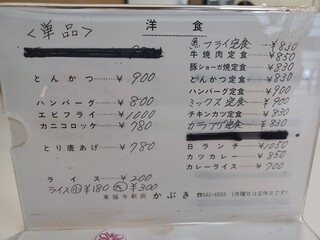 洋食
<単品>
とんかつ ー ¥ 900
ハンバーグ ー ¥ 800
エビフライ ー ¥ 1000
カニコロッケ ー ¥ 780
とり唐あげ ー ¥ 780
ライス ー ¥ 200
ライス 小 ¥180 大 ¥300
魚フライ定食 ー ¥ 830
牛焼肉定食 ー ¥ 850
豚ショーガ焼定食 ー ¥ 830
とんかつ定食 ー ¥ 830
ハンバーグ定食 ー ¥ 900
ミックス定食 ー ¥ 900
チキンカツ定食 ー ¥ 830
カラアゲ定食 ー ¥ 830
日ランチ ー ¥ 1050
カツカレー ー ¥ 850
カレーライス ー ¥ 700
東福寺駅前 かぶき (月曜日は定休日です)